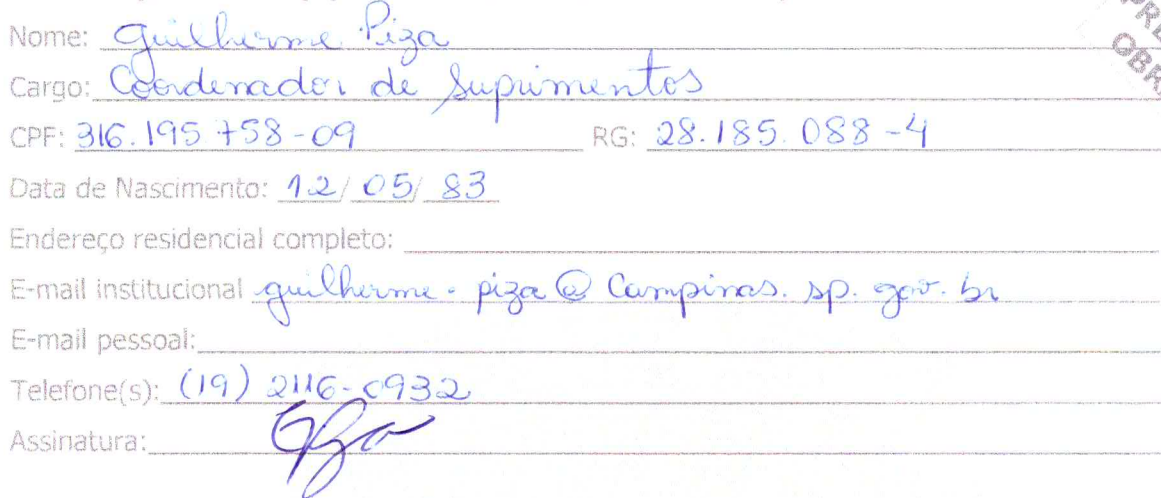 Nome: Guilherme Piza
Cargo: Coordenador de Suprimentos
CPF: 316.195 758-09 RG: 28.185.088-4
Data de Nascimento: 12/05/83
Endereço residencial completo:
E-mail institucional guilherme.piza@Campinas.sp.gov.br
E-mail pessoal:
Telefone(s): (19) 2116-0932
Assinatura: